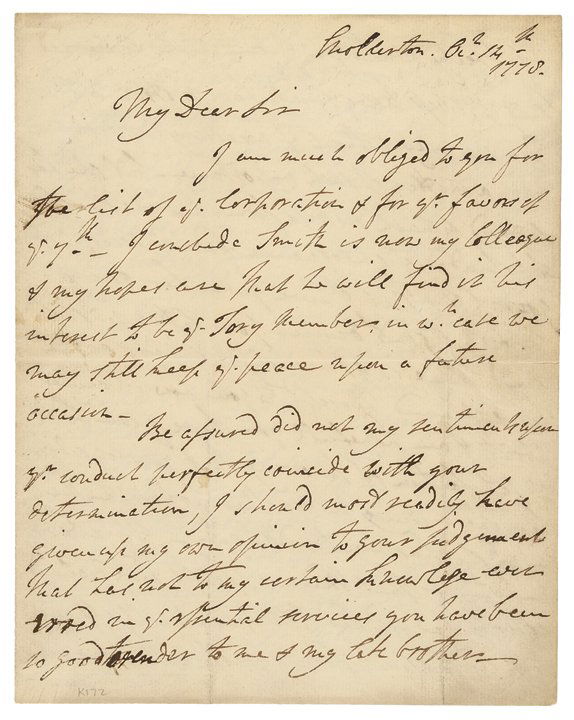 Molderton. Oc.r 14.th
1778.
My Dear Sir
I am much obliged to you for
the list of y.e Corporation & for y.r favors of
y.e 7.th – I conclude Smith is now my Colleague
& my hopes are that he will find it his
interest to be y.e Tory Member, in w.h case we
may still keep y.e peace upon a future
occasion –
Be assured did not my sentiments upon
y.r conduct perfectly coincide with your
determination, I should most readily have
given up my own opinion to your judgement
that has not to my certain knowlege ever
erred in y.e essential services you have been
so good to render to me & my late brother –
K172